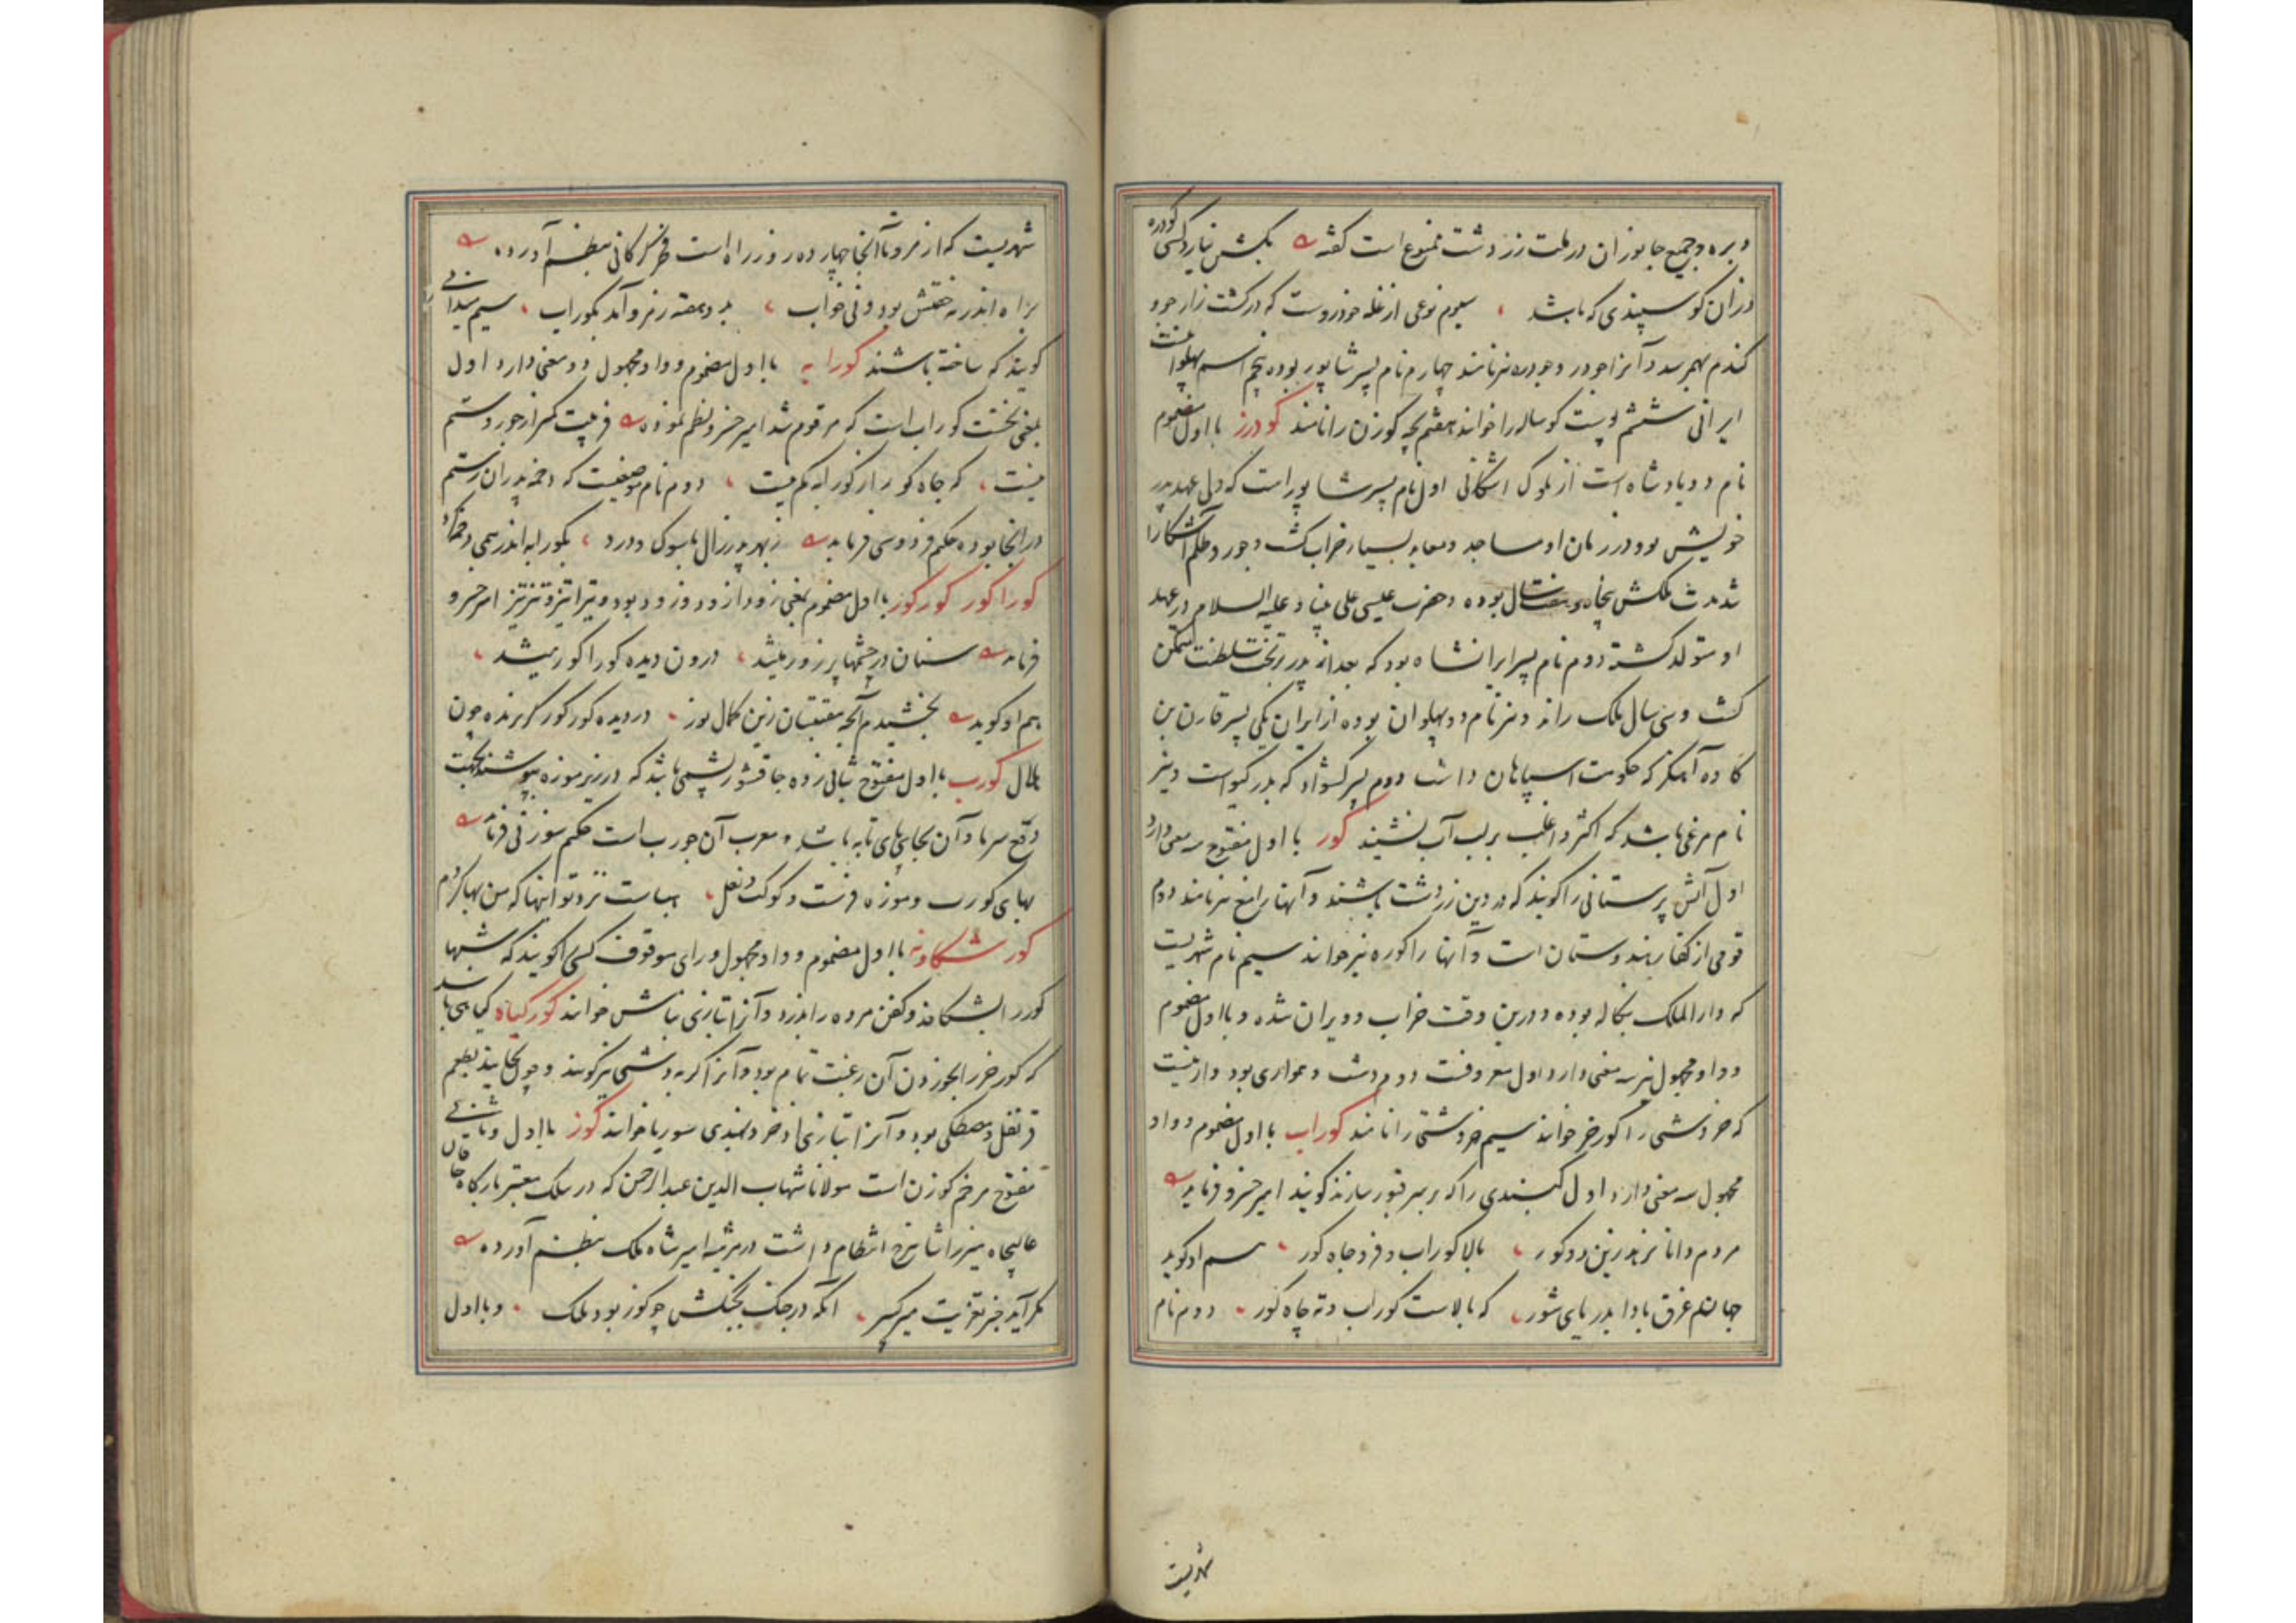 و بره و جمیع جانوران در ملت زردشت ممنوع است گفته بکش نیارد کسی کودره
دران کوسپندی که باشد سیوم نوعی از غله خودروست که در کشت زار جو و
کندم بهم رسد و آنرا جودر و جودره نیز نامند چهارم نام پسر شاپور بوده پنجم اسم پهلوانیست
ایرانی ششم پوست کوساله را خوانند هفتم بچه کوزن را نامند کودرز با اول مضموم
نام دو پادشاه است از ملوک اشکانی اول نام پسر شاپور است که ولی عهد پدر
خویش بود در زمان او مساجد و معابد بسیار خراب کشت و جور و ظلم آشکارا
شد مدت ملکش پنجاه و هفت سال بوده و حضرت عیسی علی نبینا و علیه السلام در عهد
او متولد کشته دوم نام پسر ایرانشاه بود که بعد از پدر بر تخت سلطنت متمکن
کشت و سی سال ملک راند و نیز نام دو پهلوان بوده از ایران یکی پسر قارن بن
کاوه آهنکر که حکومت اسپاهان داشت دوم پسر کشواد که پدر کیو است و نیز
نام مرغی باشد که اکثر و اغلب بر لب آب نشیند کور با اول مفتوح سه معنی دارد
اول آتش پرستانی را کویند که در دین زردشت باشند و آنها را مغ نیز نامند دوم
قومی از کفار هندوستان است و آنها را کوره نیز خوانند سیم نام شهریست
که دار الملک بنکاله بوده و درین وقت خراب و ویران شده و با اول مضموم
و واو مجهول نیز سه معنی دارد اول معروفست دوم دشت و همواری بود و ازینست
که خر دشتی را کورخر خوانند سیم خر دشتی را نامند کوراب با اول مضموم و واو
مجهول سه معنی دارد اول کنبدی را که بر سر قبور سازند کویند امیر خسرو فرماید
مردم دانا نزید زین دو کور بالا کوراب و فرو چاه کور هم او کوید
جهانم غرق بادا بدریای شور که بالاست کوراب و ته چاه کور دوم نام
شهریست
شهریست که از مرو تا آنجا چهارده روز راه است فخر کرکانی بنظم آورده
براه اندر نه خفتش بود و نی خواب بدو هفته ز مرو آمد بکوراب سیم میدانی
کویند که ساخته باشند کورابه با اول مضموم و واو مجهول دو معنی دارد اول
بمعنی نخست کوراب است که مرقوم شد امیر خسرو نظم نموده فریبت کمر از جور و ستم
نیست که چاه کور از کورابه کم نیست دوم نام موضعیست که دخمه پدران رستم
در انجا بوده حکیم فردوسی فرماید ز بهر پدر زال با سوک و درد بکورابه اندر همی دخمه کرد
کوراکور کورکور با اول مضموم بمعنی زودازود و زود زود بود و تیزاتیز و تیزتیز امیر خسرو
فرماید سنان در چشمها پر زور میشد درون دیده کوراکور میشد
هم او کوید
بلال کورب با اول مفتوح بثانی زده جاقشور پشمی باشد که در زیر موزه پوشند بجهت
دفع سرما و آن بجای پای تابه باشد و معرب آن جورب است حکیم سوزنی فرماید
بهای کورب و موزه فرست و کوکت و نعل بهاست نزد تو اینها که من بها کردم
کور شکاونه با اول مضموم و واو مجهول و رای موقوف کسی را کویند که شبها
کور را بشکافد و کفن مرده را بدزدد و آنرا بتازی نباش خوانند کورکیاه کیاهی باشد
که کورخر را بخوردن آن رغبت تمام بود و آنرا کربه دشتی نیز کویند و چون بخایند بطعم
قرنفل و مصطکی بود و آنرا بتازی اذخر و بهندی سوریا خوانند کوز با اول و ثانی
مفتوح مرخم کوزن است مولانا شهاب الدین عبدالرحمن که در سلک معتبر بارکاه خاقان
عالیجاه میرزا شاهرخ انتظام داشت در مرثیه امیر شاه ملک بنظم آورده
آنکه در جنک بجنکش چو کوز بود ملک و با اول